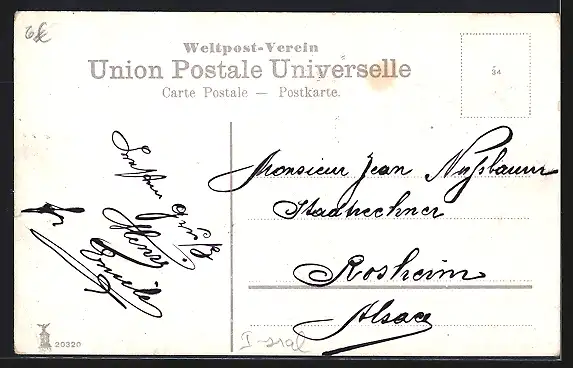 Weltpost-Verein
Union Postale Universelle
Carte Postale — Postkarte.
34
Monsieur Jean Nußbaum
Stadtrechner
Rosheim
Alsace
Gruß
Emile
20320